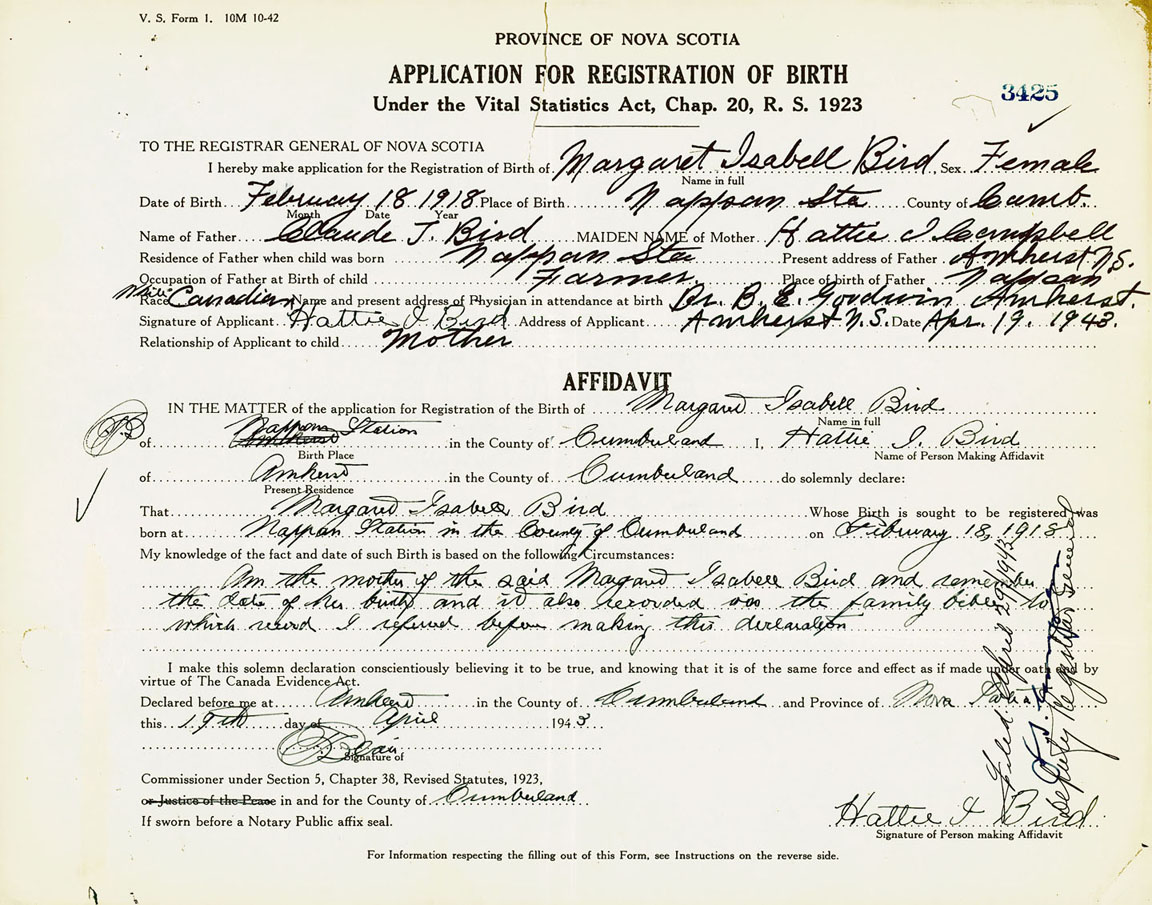 V. S. Form 1. 10M 10-42
PROVINCE OF NOVA SCOTIA
APPLICATION FOR REGISTRATION OF BIRTH
3425
Under the Vital Statistics Act, Chap. 20, R. S. 1923
TO THE REGISTRAR GENERAL OF NOVA SCOTIA
I hereby make application for the Registration of Birth of Margaret Isabell Bird Sex Female
Name in full
Date of Birth February 18 1918 Place of Birth Nappan Sta County of Cumb.
Month Date Year
Name of Father Claude T. Bird MAIDEN NAME of Mother Hattie I Campbell
Residence of Father when child was born Nappan Sta Present address of Father Amherst N.S.
Occupation of Father at Birth of child Farmer Place of birth of Father Nappan
Race White Canadian Name and present address of Physician in attendance at birth Dr. B. E. Goodwin Amherst.
Signature of Applicant Hattie I Bird Address of Applicant Amherst N.S. Date Apr. 19. 1943.
Relationship of Applicant to child Mother
AFFIDAVIT
IN THE MATTER of the application for Registration of the Birth of Margaret Isabell Bird
Name in full
of Nappan Station in the County of Cumberland I, Hattie I. Bird
Birth Place Name of Person Making Affidavit
of Amherst in the County of Cumberland do solemnly declare:
Present Residence
That Margaret Isabell Bird Whose Birth is sought to be registered was
born at Nappan Station in the County of Cumberland on February 18, 1918
My knowledge of the fact and date of such Birth is based on the following Circumstances:
Am the mother of the said Margaret Isabell Bird and remember
the date of her birth and it also recorded in the family bible to
which record I referred before making this declaration
I make this solemn declaration conscientiously believing it to be true, and knowing that it is of the same force and effect as if made under oath and by
virtue of The Canada Evidence Act.
Declared before me at Amherst in the County of Cumberland and Province of Nova Scotia
this 19th day of April 1943
Signature of
Commissioner under Section 5, Chapter 38, Revised Statutes, 1923,
or Justice of the Peace in and for the County of Cumberland
If sworn before a Notary Public affix seal.
Hattie I Bird
Signature of Person making Affidavit
For Information respecting the filling out of this Form, see Instructions on the reverse side.
Filed April 29/1943
Deputy Registrar General